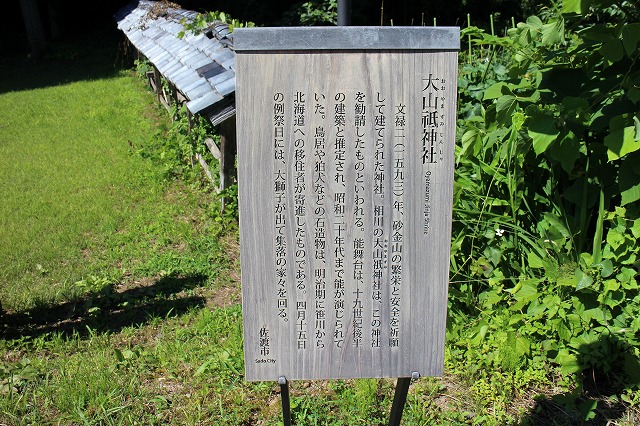 おおやまずみじんじゃ
大山祇神社
Oyamazumi-jinja Shrine
文禄二(一五九三)年、砂金山の繁栄と安全を祈願
して建てられた神社。相川の大山祇神社は、この神社
を勧請したものといわれる。能舞台は、十九世紀後半
の建築と推定され、昭和二十年代まで能が演じられて
いた。鳥居や狛犬などの石造物は、明治期に笹川から
北海道への移住者が寄進したものである。四月十五日
の例祭日には、大獅子が出て集落の家々を回る。
佐渡市
Sado City